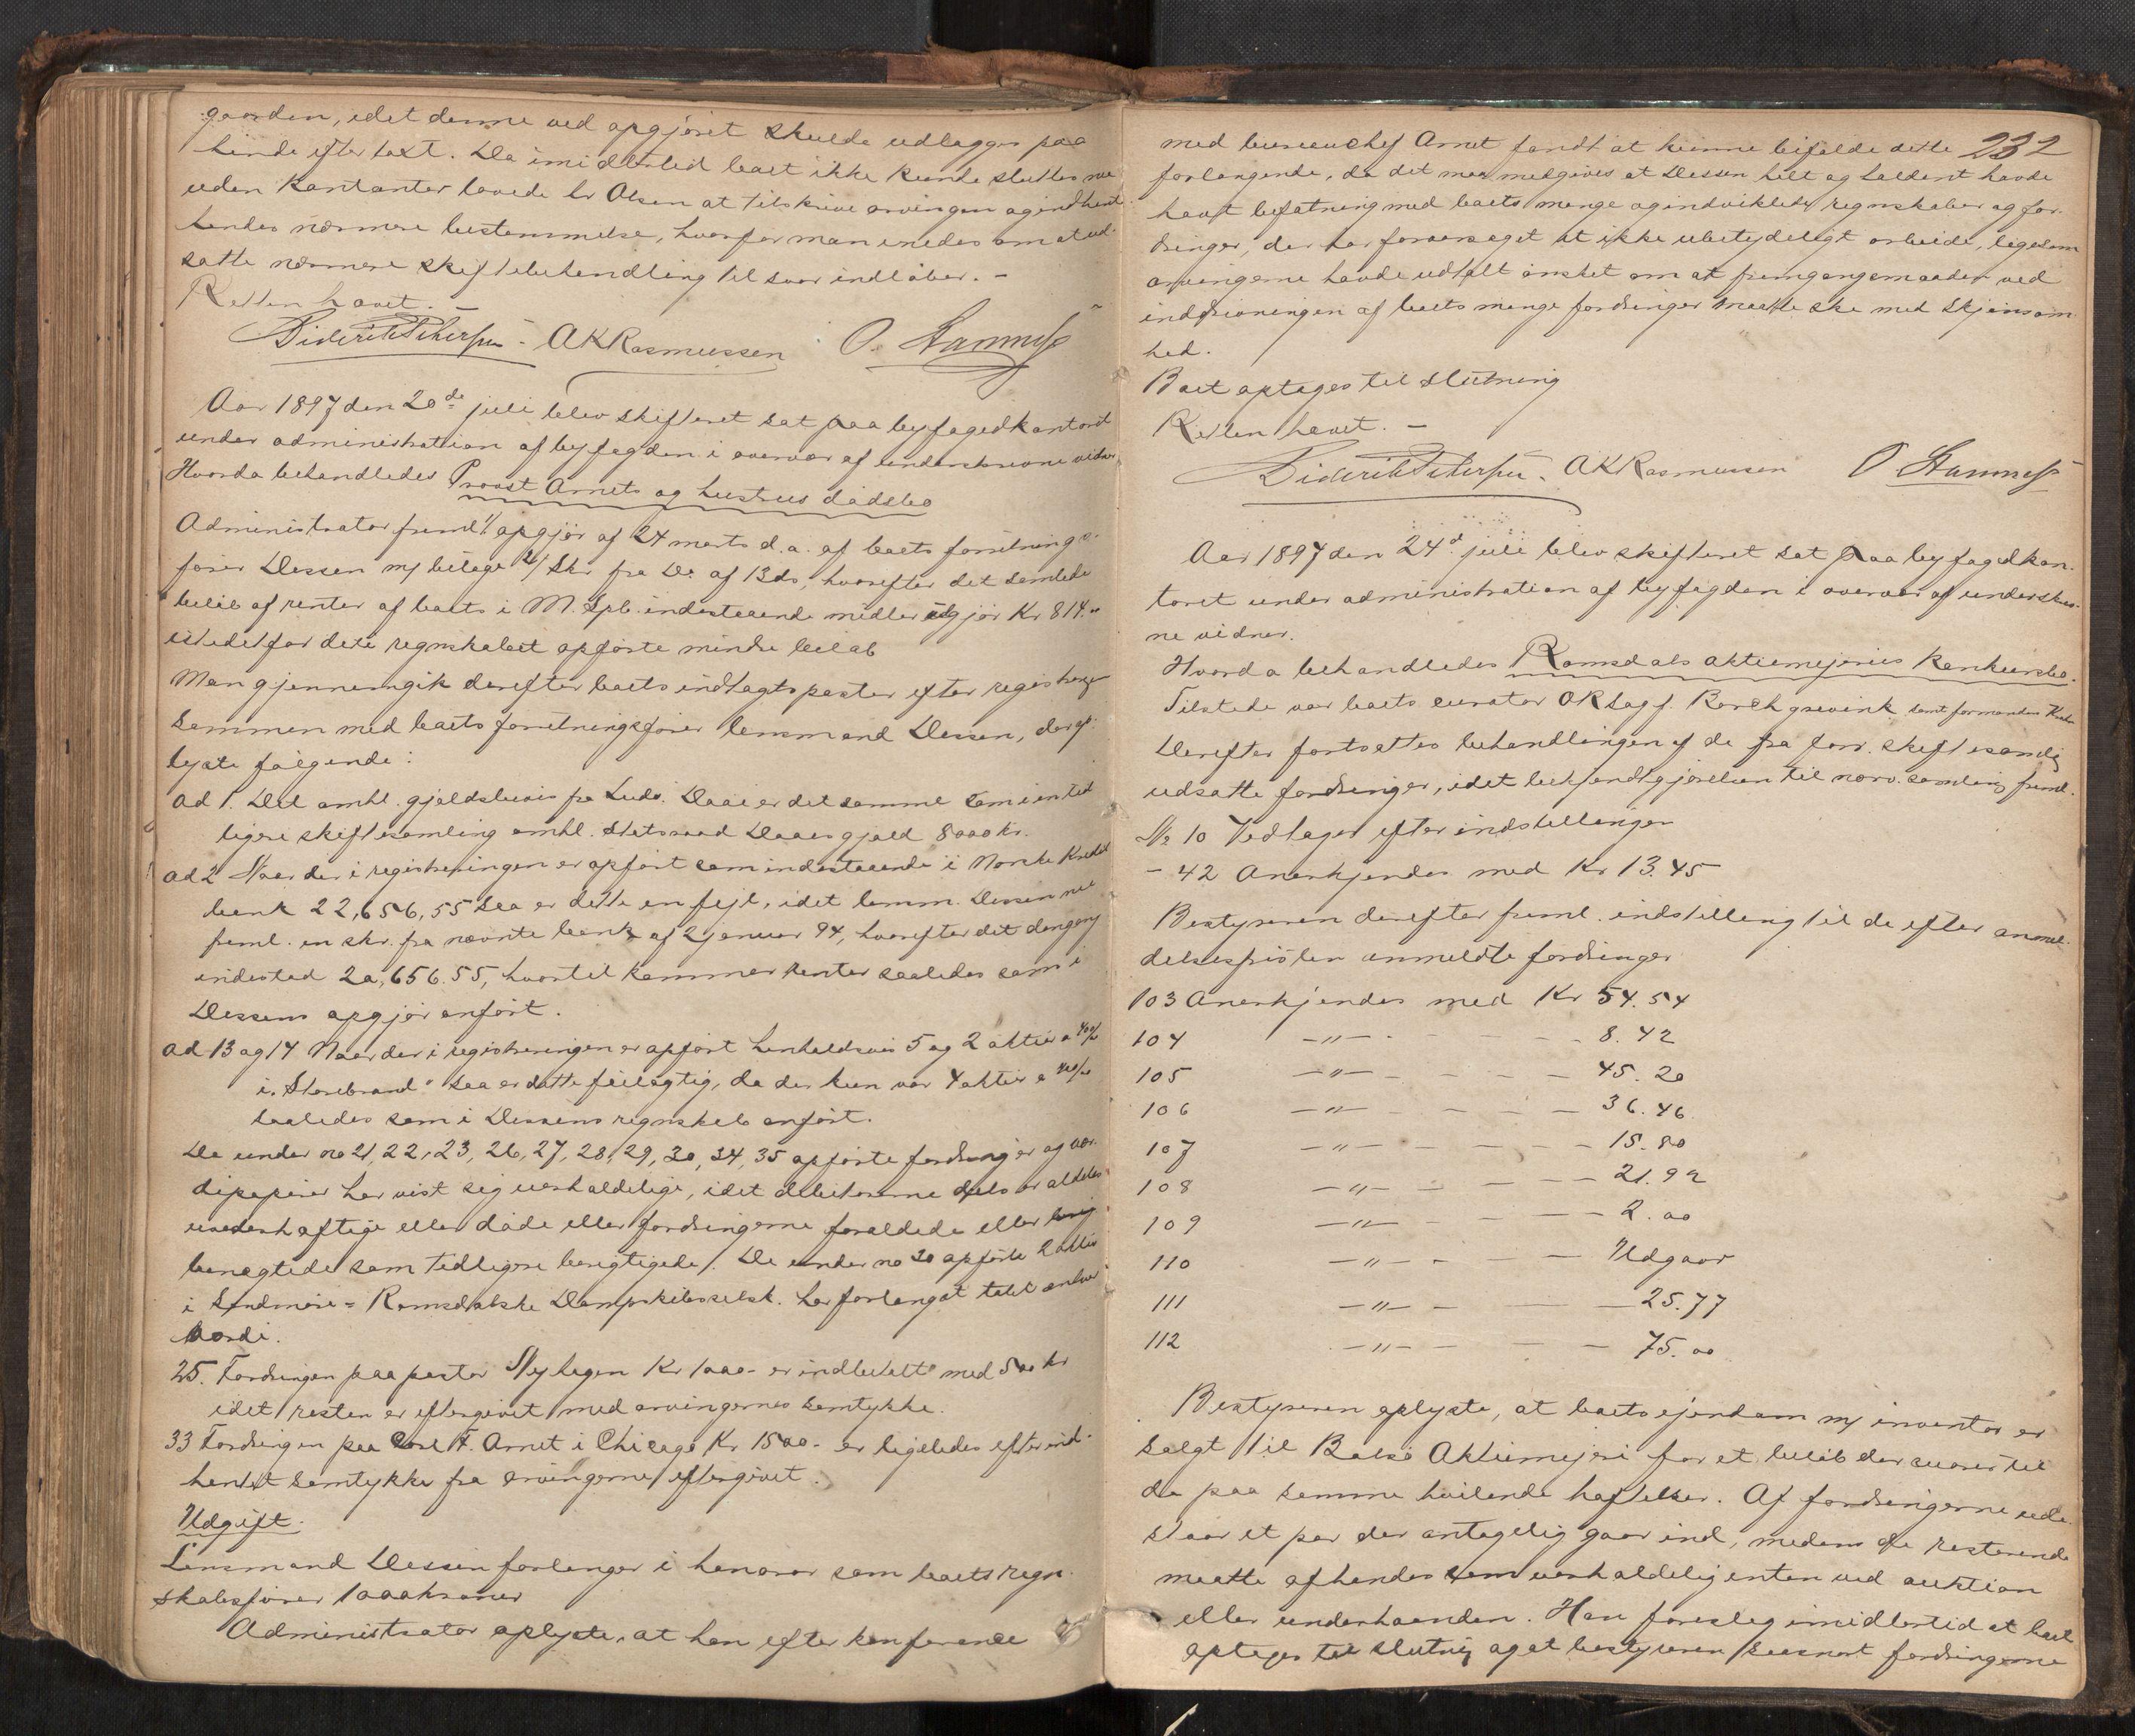 gaarden, idet denne ved opgjøret skulde udlægges paa
hende efter taxt. Da imidlertid boet ikke kunde sluttes nu
uden kontanter lovede hr Olsen at tilskrive arvingen og indhente
hendes nærmere bestemmelse, hvorfor man enedes om at ud-
satte nærmere skiftebehandling til svar indløber. -
Retten hævet. -
Diderik Petersen - AKRasmussen O. Hammes
Aar 1897 den 20de juli blev skifteret sat paa byfogedkontoret
under administration af byfogden i overvær af underskrevne vidner
Hvorda behandledes Provst Arnets og hustrus dødsbo
Administrator freml 1/ opgjør af 24 marts d.a. af boets forretnings-
fører Dessen m/ bilage 2/ Skr fra Do af 13 ds, hvorefter det samlede
beløb af renter af boets i M. Spb. indestaaende midler udgjør Kr 814.00
istedetfor det i regnskabet opførte mindre beløb
Man gjennemgik derefter boets indtægtsposter efter registreringen
sammen med boets forretningsfører lensmand Dessen, der op-
lyste følgende:
ad 1. Det omhl. gjældsbevis fra Ludv. Daae er det samme som i en tid
ligere skiftesamling omhl. Statsraad Daaes gjæld 8000 kr.
ad 2 Naar der i registreringen er opført som indestaaende i Norske Kredit
bank 22,656,55 saa er dette en feil, idet lensm. Dessen nu
freml. en skr. fra nævnte bank af 2 januar 94, hvorefter det dengang
indestod 20,656.55, hvortil kommer renter saaledes som i
Dessens opgjør anført.
ad 13 og 14 Naar der i registreringen er opført henholdsvis 5 og 2 aktier a 400/00
i "Storebrand" saa er dette feilagtig, da der kun var 4 aktier a 400/00
saaledes som i Dessens regnskab anført.
De under no 21, 22, 23, 26, 27, 28, 29, 30, 34, 35 opførte fordringer og vær-
dipapirer har vist sig uerholdelige, idet debitorerne dels er aldeles
uvederhæftige eller døde eller fordringerne forældede eller
benægtede som tidligere berigtigede/. De under no 20 opførte 2 aktier
i Søndmøre-Romsdalske Dampskibsselsk. har forlængst tabt enhver
værdi.
25. Fordringen paa pastor Nyhagen Kr 1000- er indbetalt med 500 kr
idet resten er eftergivet med arvingernes samtykke.
33 Fordringen paa Carl F. Arnet i Chicago Kr. 1500- er ligeledes efter ind-
hentet samtykke fra arvingerne eftergivet.
Udgift.
Lensmand Dessen forlanger i honorar som boets regn-
skabsfører 1000 kroner
Administrator oplyste, at han efter konference
232
med bureauchef Arnet fandt at kunne bifalde dette
forlangende, da det maa medgives at Dessen helt og holdent havde
havt befatning med boets mange og indviklede regnskaber og for-
dringer, der har foraarsaget et ikke ubetydeligt arbeide, ligesom
arvingerne havde udtalt ønsket om at fremgangsmaaden ved
inddrivningen af boets mange fordringer maatte ske med skjønsom-
hed.
Boet optages til slutning
Retten hævet. -
Diderik Petersen. AKRasmussen O Hammes
Aar 1897 den 24d juli blev skifteret sat paa byfogedkon-
toret under administration af byfogden i overvær af underskrev-
ne vidner.
Hvorda behandledes Romsdals aktiemejeries konkursbo.
Tilstede var boets curator ORsagf. Borchgrevink samt formanden
Derefter fortsattes behandlingen af de fra forr. skiftesamling
udsatte fordringer, idet bekjendtgjørelsen til nærv. samling freml.
No 10 Vedtages efter indstillingen
- 42 Anerkjendes med Kr 13.45
Bestyreren derefter freml. indstilling til de efter anmel-
delsesfristen anmeldte fordringer
103 Anerkjendes med Kr 54.54
104 -"- - - - 8.42
105 -"- - - - 45.20
106 -"- - - - 36.46
107 -"- - - - 15.80
108 -"- - - - 21.92
109 -"- - - - 2.00
110 -"- - - Udgaar
111 -"- - - - 25.77
112 -"- - - - 75.00
Bestyreren oplyste, at boets ejendom m/ inventar er
solgt til Bolsø Aktiemejeri for et beløb der svarer til
de paa samme hvilende hæftelser. Af fordringerne ude-
staar et par der antagelig gaar ind, medens de resterende
maatte afhændes som uerholdelig enten ved auktion
eller underhaanden. Han foreslog imidlertid at boet
optages til slutning og at bestyreren saasnart fordringerne